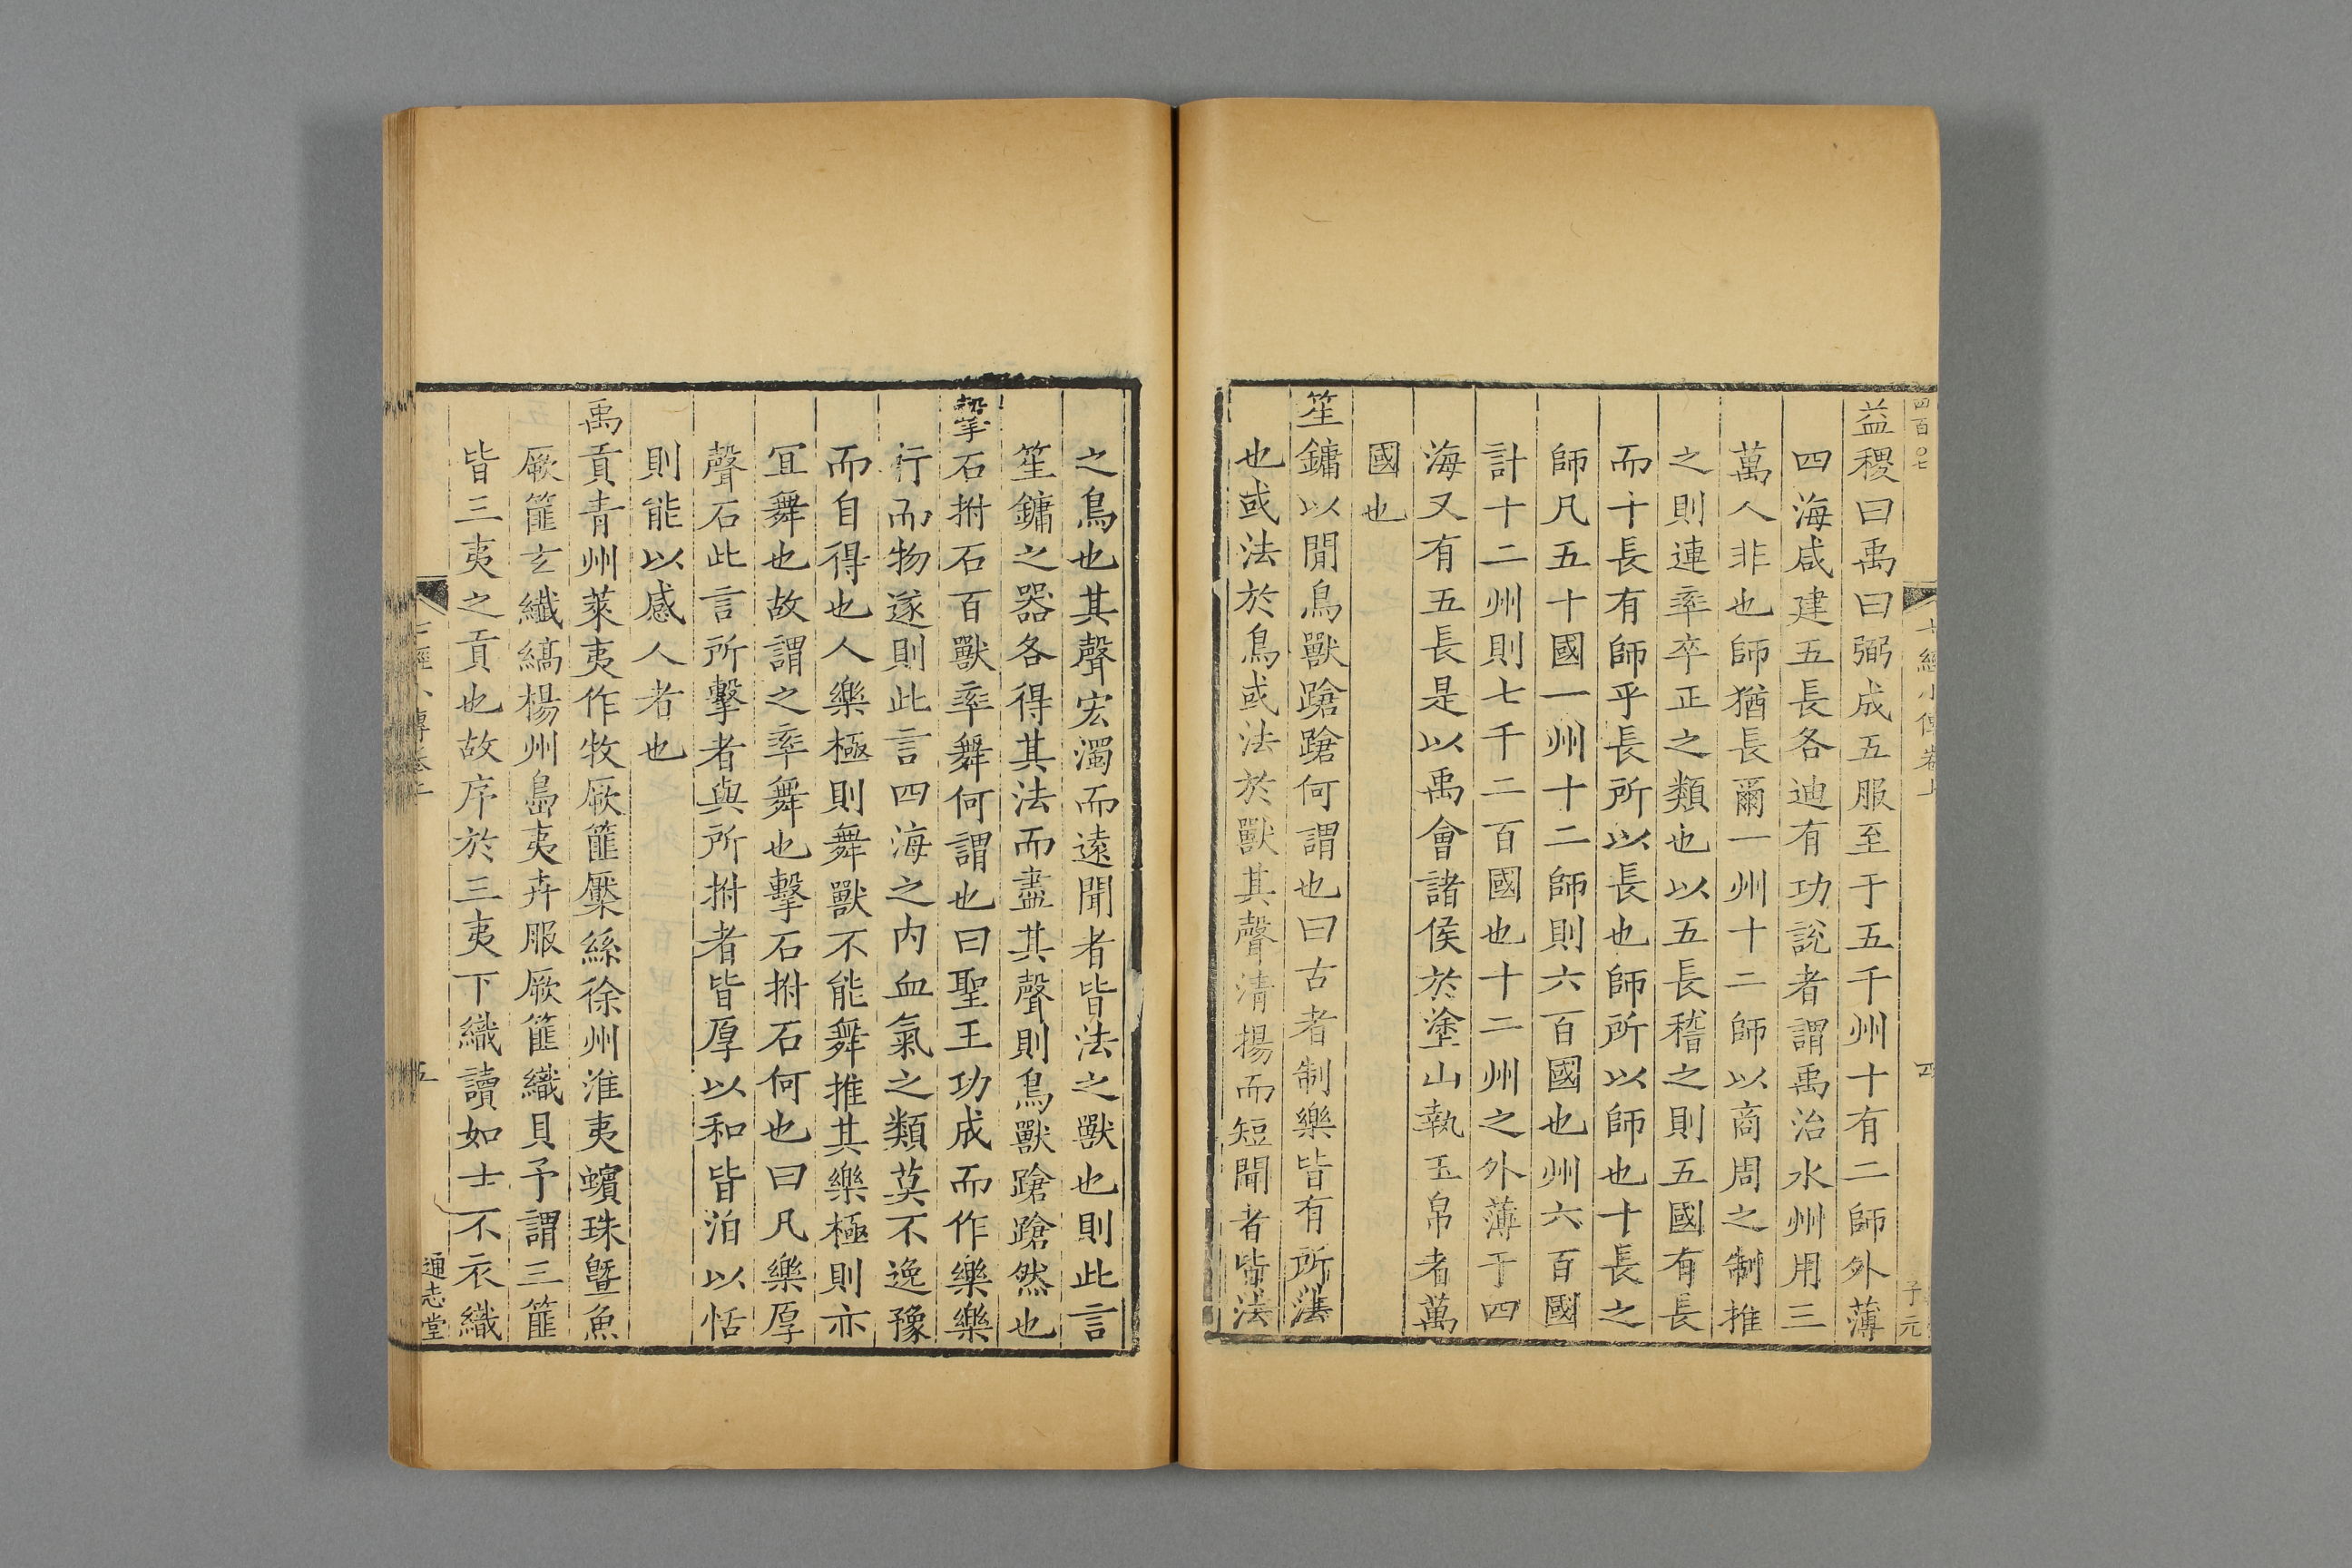 四百○七
七經小傳卷上
四
子元
益稷曰禹曰弼成五服至于五千州十有二師外薄
四海咸建五長各迪有功說者謂禹治水州用三
萬人非也師猶長爾一州十二師以商周之制推
之則連率卒正之類也以五長稽之則五國有長
而十長有師乎長所以長也師所以師也十長之
師凡五十國一州十二師則六百國也州六百國
計十二州則七千二百國也十二州之外薄于四
海又有五長是以禹會諸侯於塗山執玉帛者萬
國也
笙鏞以間鳥獸蹌蹌何謂也曰古者制樂皆有所法
也或法於鳥或法於獸其聲清揚而短聞者皆法
之鳥也其聲宏濁而遠聞者皆法之獸也則此言
笙鏞之器各得其法而盡其聲則鳥獸蹌蹌然也
石拊石百獸率舞何謂也曰聖王功成而作樂樂
行而物遂則此言四海之內血氣之類莫不逸豫
而自得也人樂極則舞獸不能舞推其樂極則亦
冝舞也故謂之率舞也擊石拊石何也曰凡樂厚
聲石此言所擊者與所拊者皆厚以和皆泊以恬
則能以感人者也
禹貢青州萊夷作牧厥篚檿絲徐州淮夷蠙珠曁魚
厥篚玄纖縞楊州島夷卉服厥篚織貝予謂三篚
皆三夷之貢也故序於三夷下織讀如士不衣織
七經小傳卷上
五
通志堂